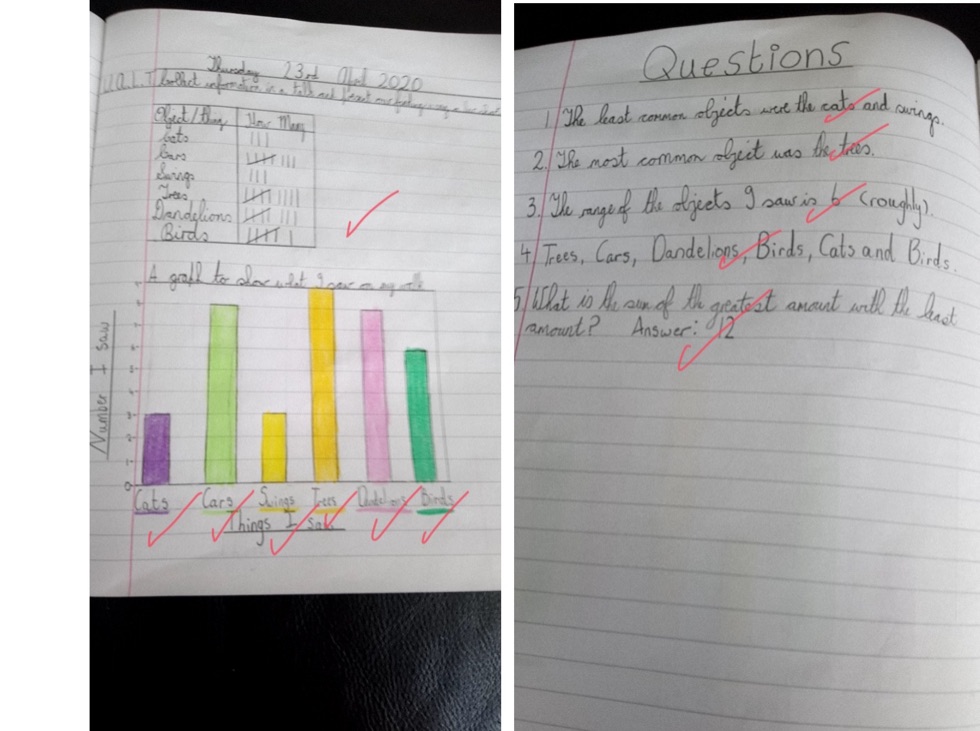 Thursday 23rd April 2020
W.A.L.T collect information in a tally and
Object/thing How Many
Cats
Cars
Swings
Trees
Dandelions
Birds
A graph to show what I saw on my
8
7
6
5
4
3
2
1
0
Number I saw
Cats Cars Swings Trees Dandelions Birds
Things I saw
Questions
1. The least common objects were the cats and swings.
2. The most common object was the trees.
3. The range of the objects I saw is 6 (roughly).
4. Trees, Cars, Dandelions, Birds, Cats and Birds.
5. What is the sum of the greatest amount with the least
amount? Answer: 12